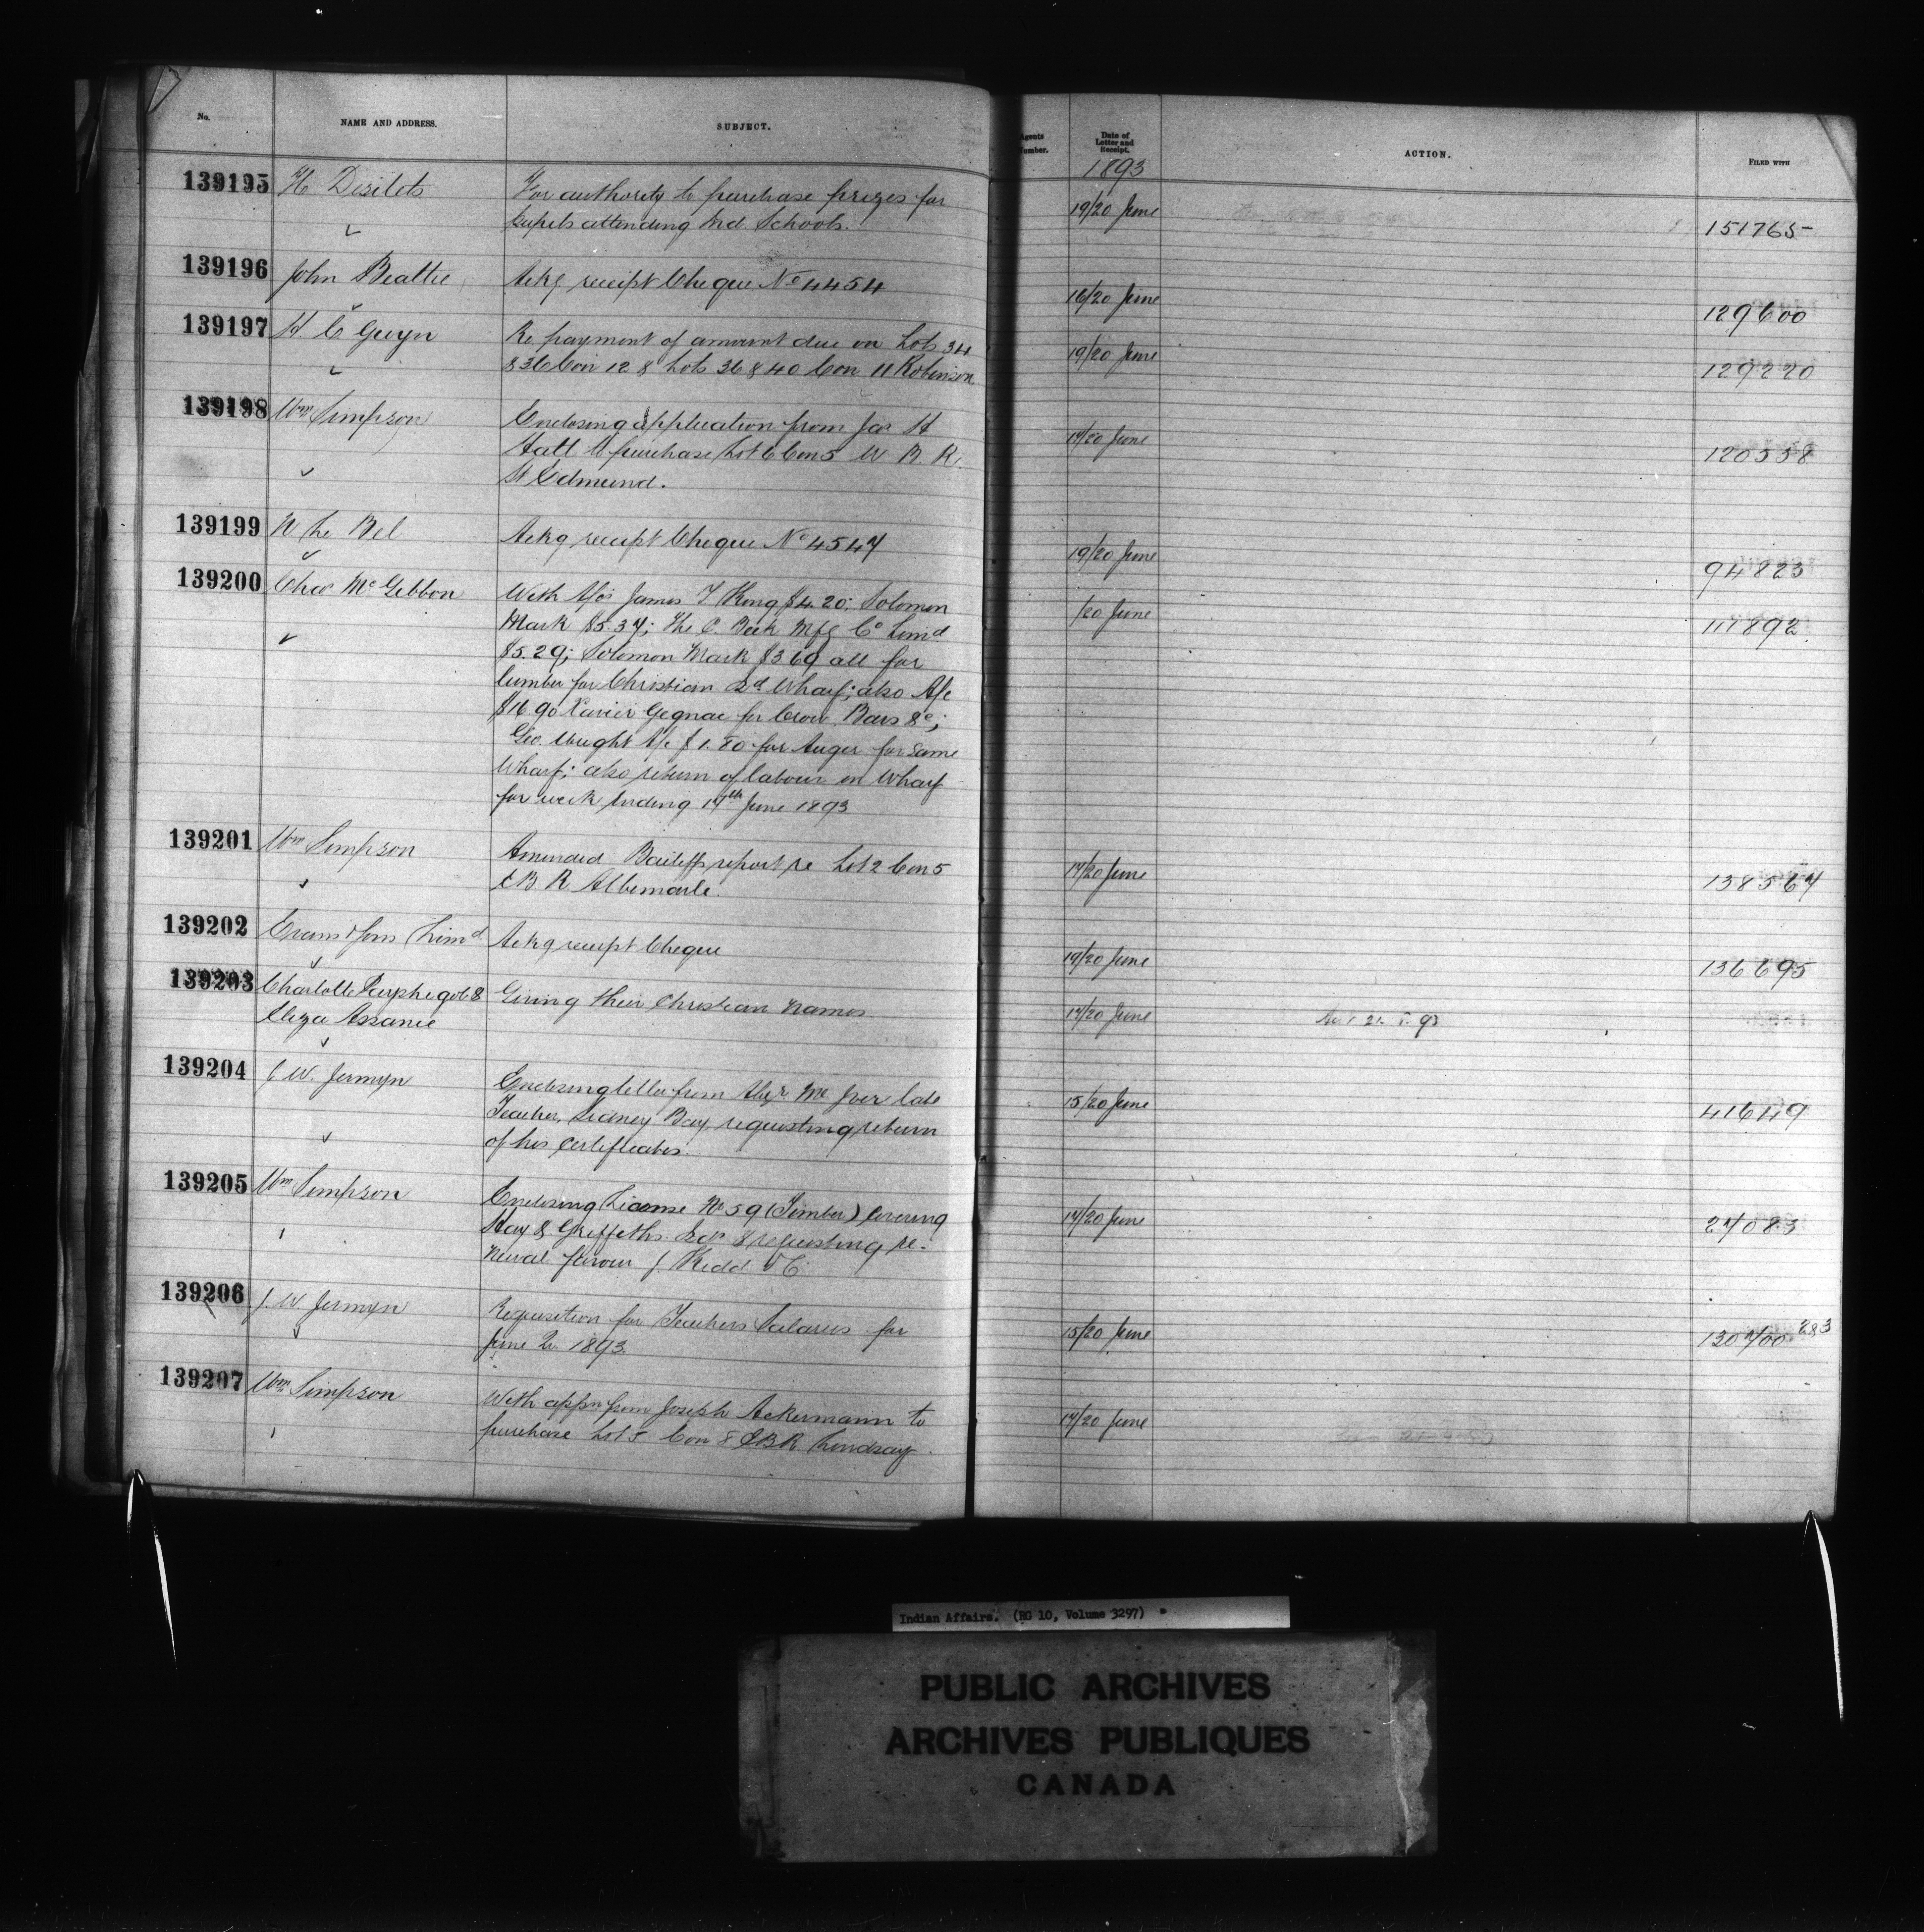 No. NAME AND ADDRESS. SUBJECT. Agents Number. Date of Letter and Receipt. ACTION. FILED WITH
1893
139195 H Desilets For authority to purchase prizes for 19/20 June 151765
pupils attending Ind. Schools.
139196 John Beattie Ackg receipt Cheque No 4454 16/20 June 129600
139197 H. C Gwyn Re payment of amount due on Lots 34 19/20 June 129220
& 36 Con 12 & Lots 36 & 40 Con 11 Robinson
139198 Wm Simpson Enclosing application from Jas H 17/20 June 120558
Hall to purchase Lot 6 Con 5 W. B. R.
St Edmund.
139199 N Le Bel Ackg receipt Cheque No 4547 19/20 June 94823
139200 Chas McGibbon With A/cs James T King $4.20; Solomon /20 June 117892
Mark $5.37; The C. Beck Mfg Co Limd
$5.29; Solomon Mark $3.69 all for
lumber for Christian Isd Wharf; also A/c
$16.90 Xavier Gegnac for Crow Bars &c;
Geo. Wright A/c $1.80 for Auger for same
Wharf; also return of labour on Wharf
for week ending 17th June 1893
139201 Wm Simpson Amended Bailiffs report re Lot 2 Con 5 17/20 June 138567
E B R Albemarle.
139202 Evans & Sons (Limd Ackg receipt Cheque 19/20 June 136695
139203 Charlotte & Giving their Christian names 17/20 June
Eliza Assance
139204 J. W. Jermyn Enclosing letter from Alexr Mc Iver late 15/20 June 41649
Teacher, Sidney Bay, requesting return
of his certificates.
139205 Wm Simpson Enclosing License No 59 (Timber) covering 17/20 June 27083
Hay & Griffiths Isds & requesting re-
newal favour J. Kidd
139206 J. W. Jermyn Requisition for Teachers Salaries for 15/20 June 130700-283
June Qr 1893
139207 Wm Simpson With appn from Joseph Ackermann to 17/20 June
purchase Lot 5 Con 8 EBR Lindsay.
Indian Affairs. (RG 10, Volume 3297)
PUBLIC ARCHIVES
ARCHIVES PUBLIQUES
CANADA